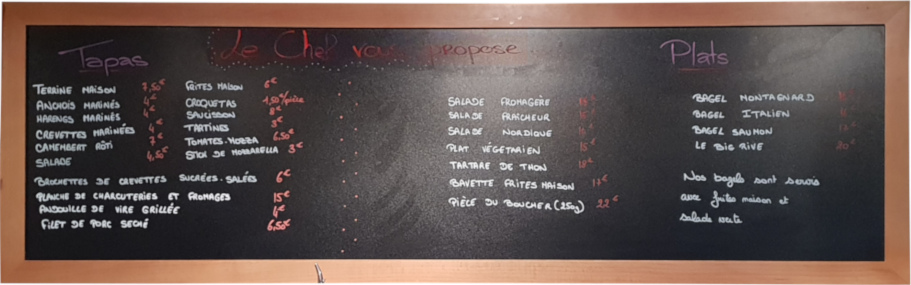 Le Chef vous propose
Tapas
TERRINE MAISON 7,50€
ANCHOIS MARINÉS 4€
HARENGS MARINÉS 4€
CREVETTES MARINÉES 4€
CAMEMBERT RÔTI 7€
SALADE 4,50€
FRITES MAISON 6€
CROQUETAS 1,50€/pièce
SAUCISSON 8€
TARTINES 3€
TOMATES-MOZZA 6,50€
STICK DE MOZZARELLA 3€
BROCHETTES DE CREVETTES SUCRÉES-SALÉES 6€
PLANCHE DE CHARCUTERIES ET FROMAGES 15€
ANDOUILLE DE VIRE GRILLÉE 4€
FILET DE PORC SECHÉ 6,50€
SALADE FROMAGÈRE
SALADE FRAÎCHEUR
SALADE NORDIQUE
PLAT VÉGÉTARIEN 15€
TARTARE DE THON 18€
BAVETTE FRITES MAISON 17€
PIÈCE DU BOUCHER (250g) 22€
Plats
BAGEL MONTAGNARD
BAGEL ITALIEN
BAGEL SAUMON
LE BIG RIVE 20€
Nos bagels sont servis
avec frites maison et
salade verte